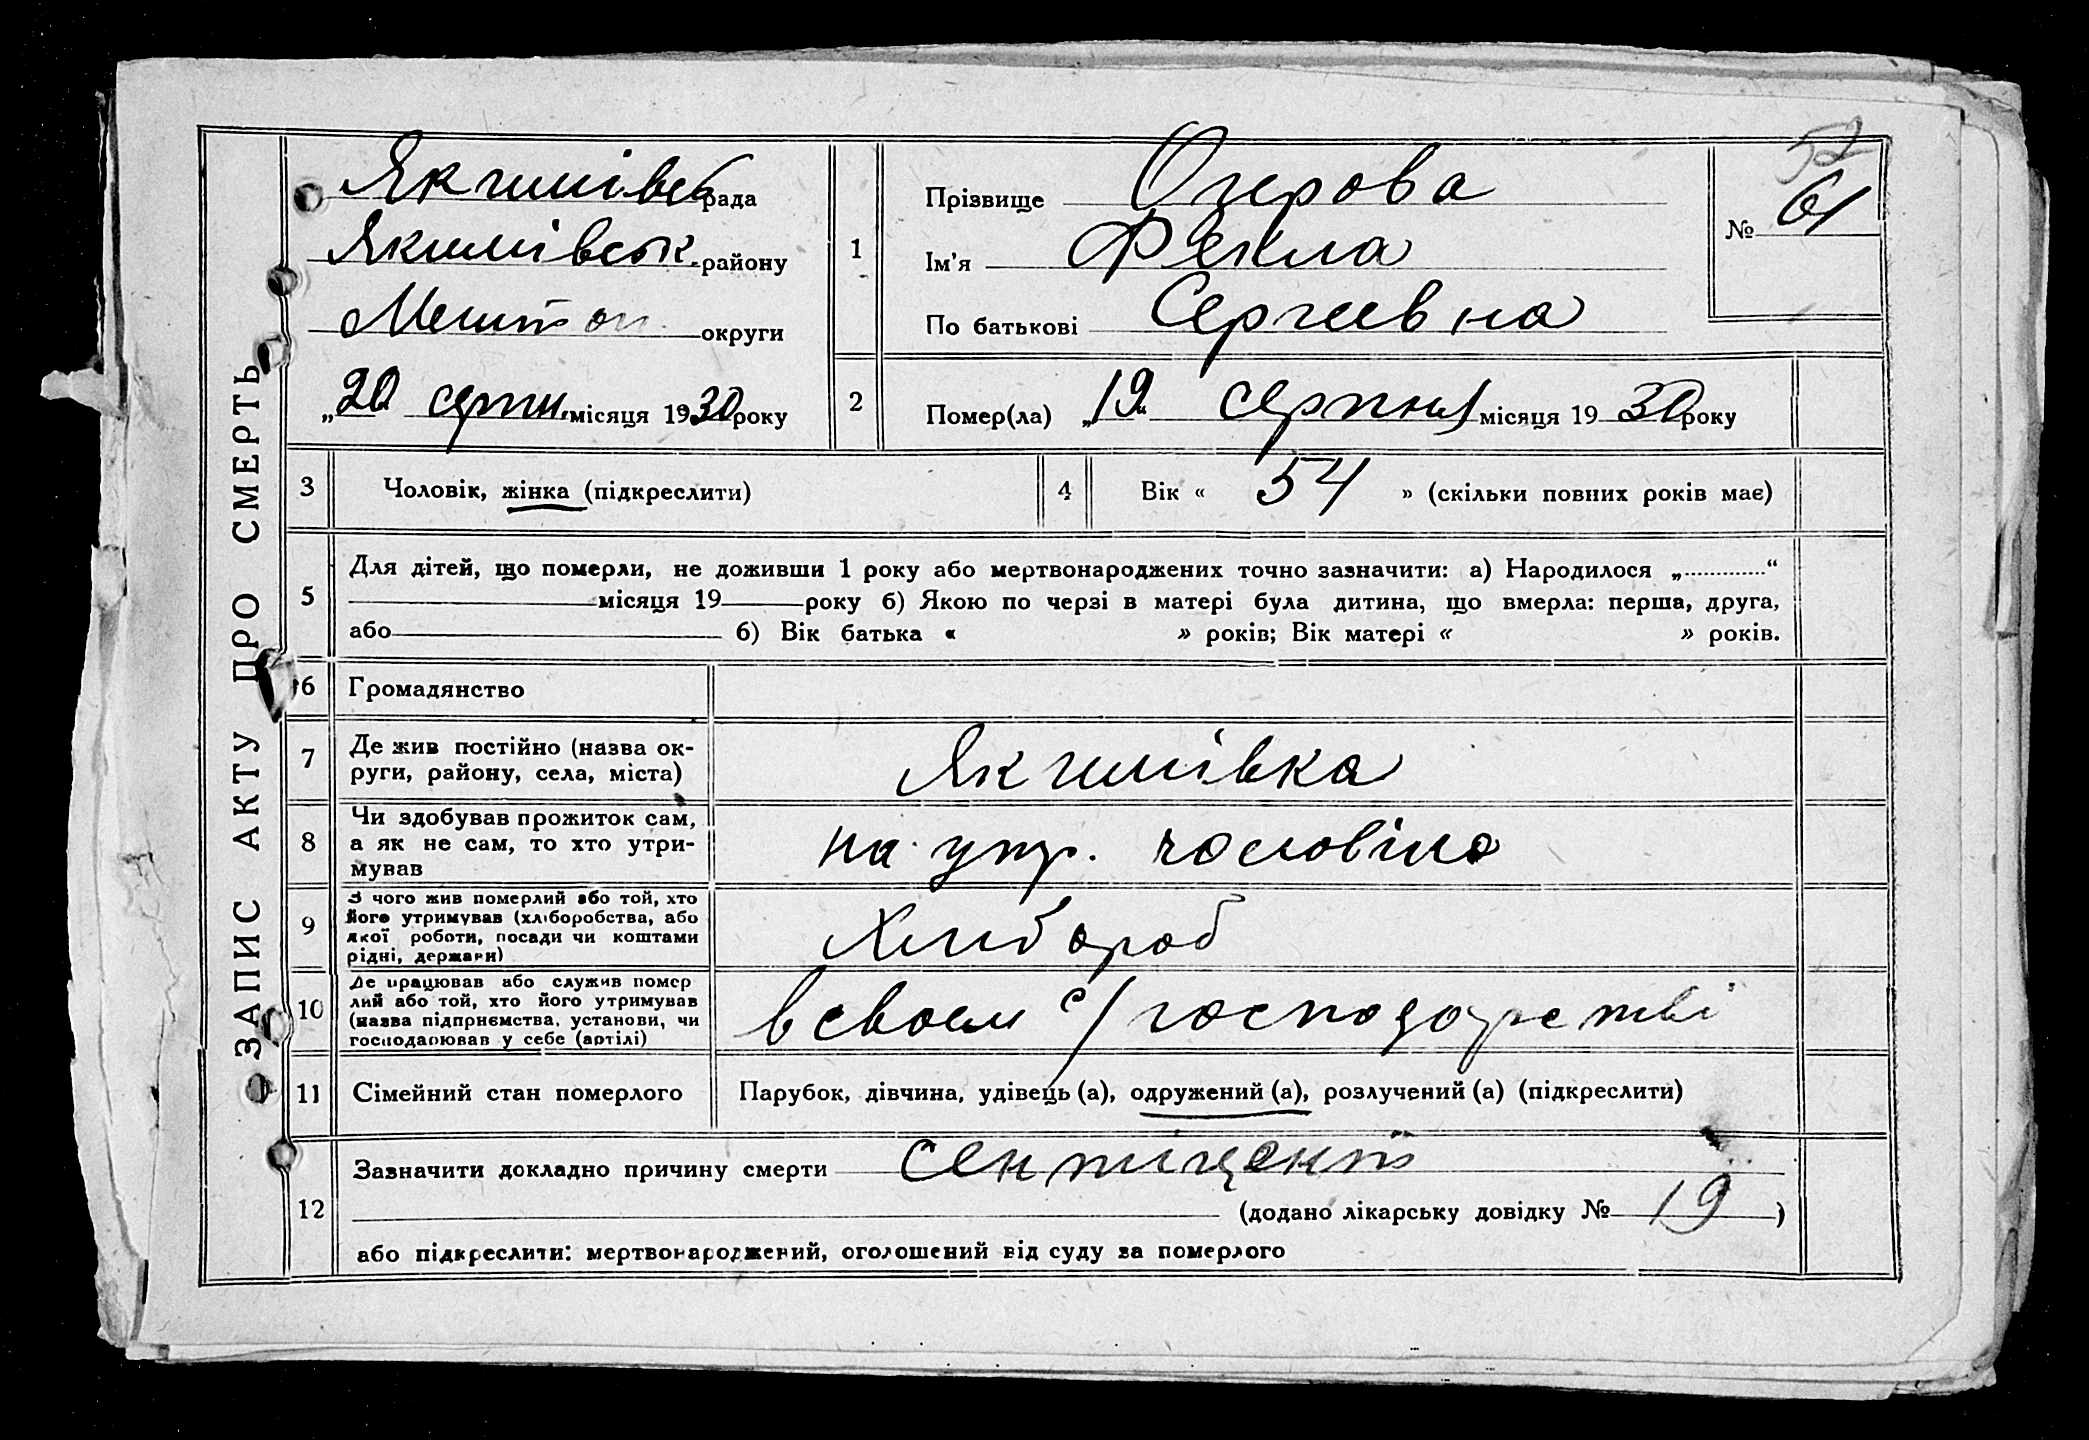 ЗАПИС АКТУ ПРО СМЕРТЬ
Якимівсь рада
Якимівськ. району
Мелитоп. округи
„20 серпн. місяця 1930 року
1
Прізвище Озерова
Ім'я Фекла
По батькові Сергеевна
52
№ 61
2
Помер(ла) „19“ серпня місяця 1930 року
3
Чоловік, жінка (підкреслити)
4
Вік « 54 » (скільки повних років має)
5
Для дітей, що померли, не доживши 1 року або мертвонароджених точно зазначити: а) Народилося „.............“
місяця 19 року б) Якою по черзі в матері була дитина, що вмерла: перша, друга,
або б) Вік батька « » років; Вік матері « » років.
6
Громадянство
7
Де жив постійно (назва ок-
руги, району, села, міста)
Якимівка
8
Чи здобував прожиток сам,
а як не сам, то хто утри-
мував
на утр. чоловіка
9
З чого жив померлий або той, хто
його утримував (хліборобства, або
якої роботи, посади чи коштами
рідні, держави)
Хлибороб
10
Де працював або служив помер
лий або той, хто його утримував
(назва підприємства, установи, чи
господарював у себе (артілі)
в своем с/господарстві
11
Сімейний стан померлого
Парубок, дівчина, удівець (а), одружений (а), розлучений (а) (підкреслити)
12
Зазначити докладно причину смерти
(додано лікарську довідку № 19)
або підкреслити: мертвонароджений, оголошений від суду за померлого